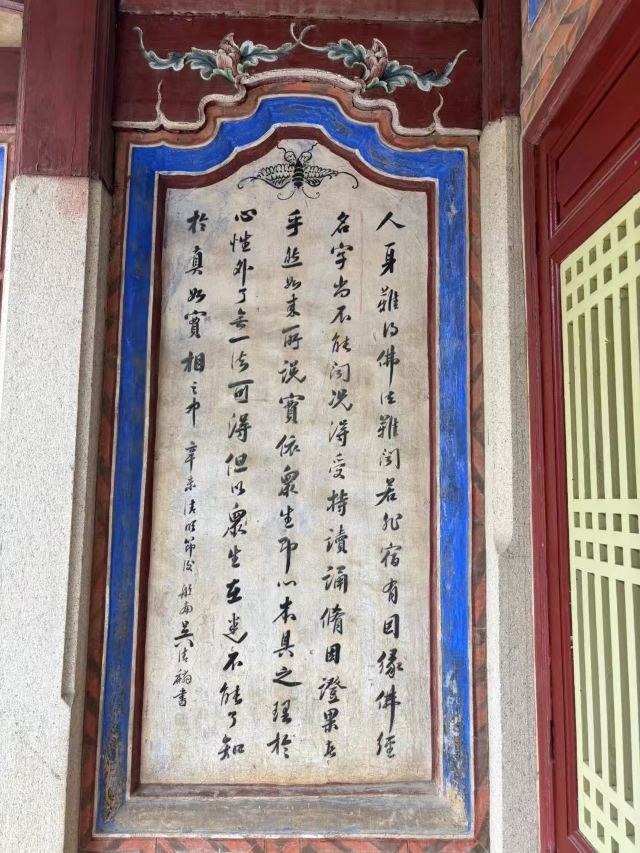 人身難得佛法難聞若非宿有因緣佛經
名字尚不能聞況得受持讀誦脩因證果者
乎然如來所說實依衆生即心本具之理於
心性外了無一法可得但以衆生在迷不能了知
於真如實相之中 辛未清明節後 吳清書